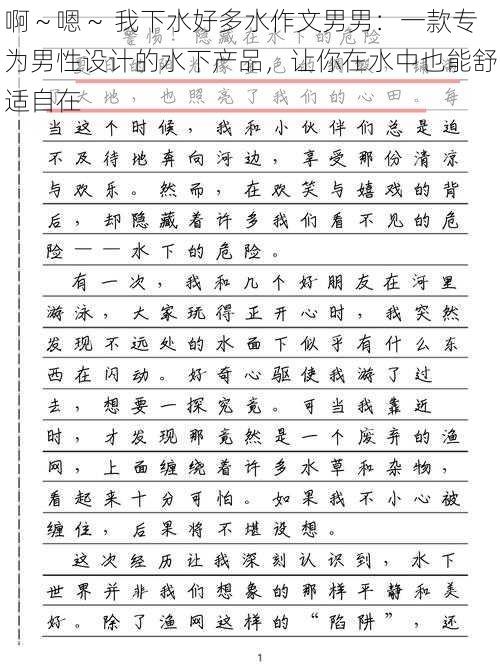 啊～嗯～ 我下水好多水作文男男：一款专
为男性设计的水下产品，让你在水中也能舒
适自在
警惕！隐藏在水下的危险
大地，也照亮了我们的心田。每
当这个时候，我和小伙伴们总是迫
不及待地奔向河边，享受那份清凉
与欢乐。然而，在欢笑与嬉戏的背
后，却隐藏着许多我们看不见的危
险——水下的危险。
有一次，我和几个好朋友在河里
游泳，大家玩得正开心时，我突然
发现不远处的水面下似乎有什么东
西在闪动。好奇心驱使我游了过
去，想要一探究竟。可当我靠近
时，才发现那竟然是一个废弃的渔
网，上面缠绕着许多水草和杂物，
看起来十分可怕。如果我不小心被
缠住，后果将不堪设想。
这次经历让我深刻认识到，水下
世界并非我们想象的那样平静和美
好。除了渔网这样的“陷阱”，还
1